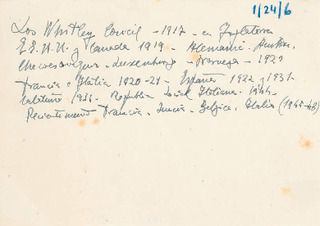 1/24/6
Los Whitley Council - 1917 - en Inglaterra
E.E.U.U. y Canada 1919 - Alemania - Austria,
Checoeslovaquia - Luxemburgo - Noruega - 1920
Francia e Italia 1920-21 - España 1922 y 1931
1936 - Republica Social Italiana - 1944 -
Recientemente Francia - Suecia - Belgica, Italia (1945-48)